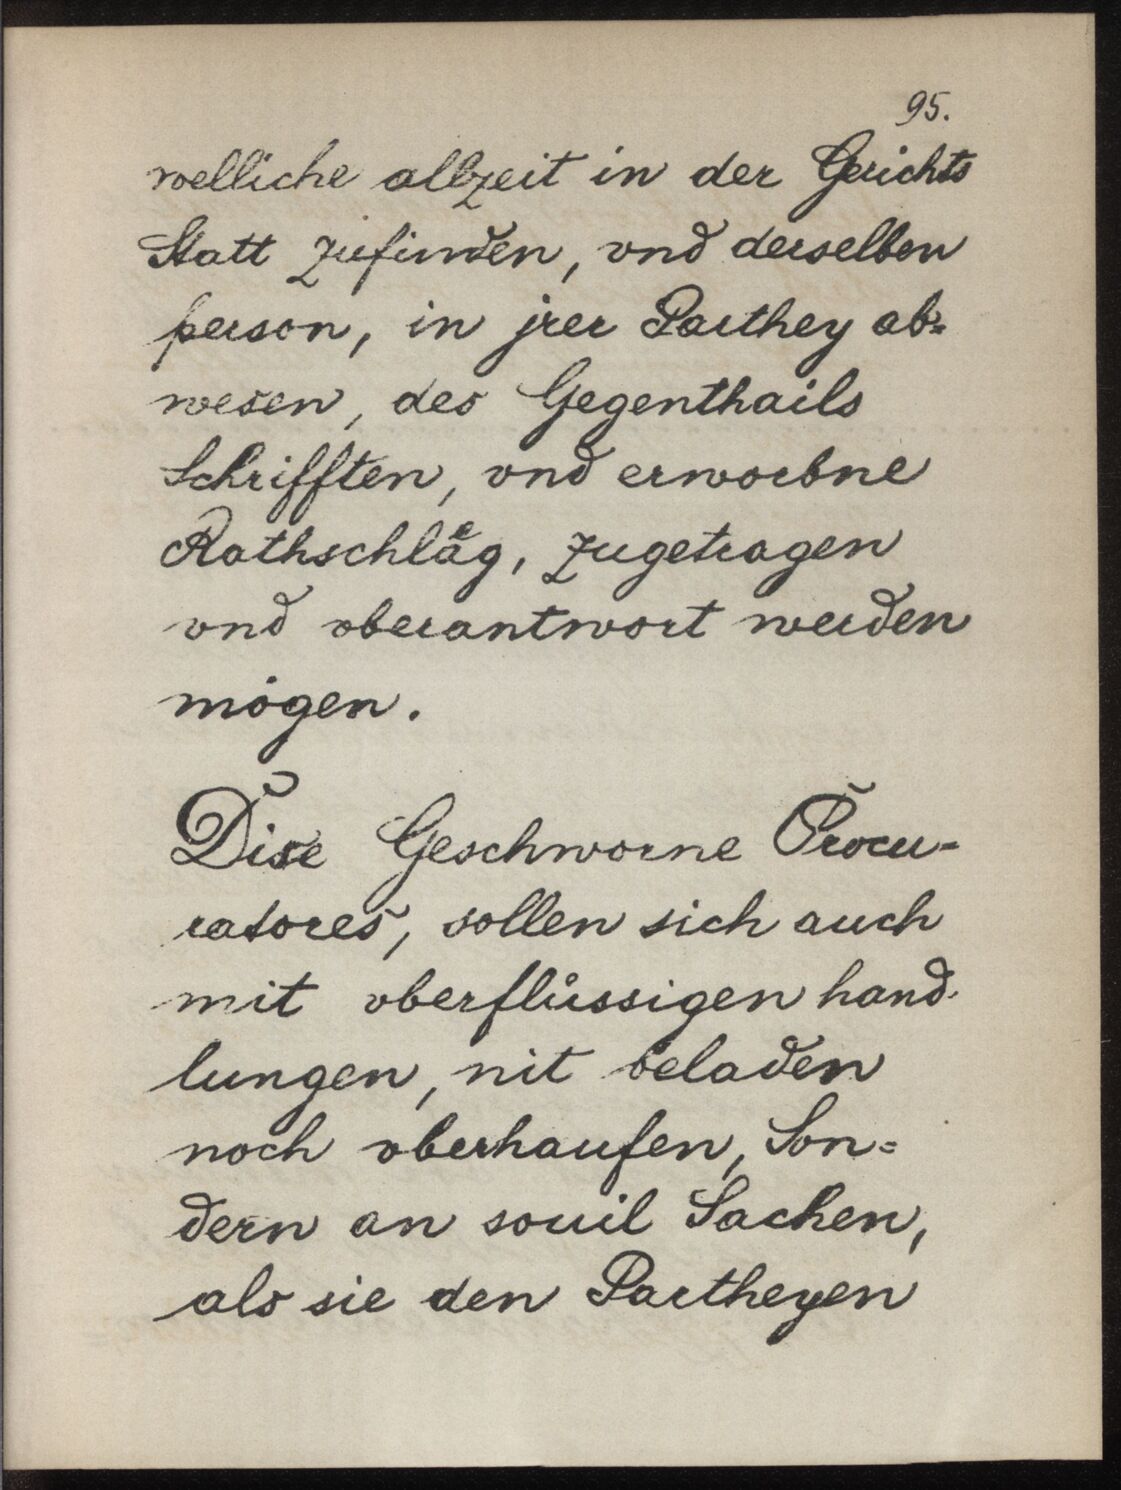 95.
welliche allzeit in der Gerichts
Statt zufinden, vnd derselben
person, in jrer Parthey ab=
wesen, des Gegenthails
Schrifften, vnd erworbne
Rathschlåg, zugetragen
vnd vberantwort werden
mögen.
Dise Geschworne Procu-
ratores, sollen sich auch
mit vberflüssigen hand-
lungen, nit beladen
noch vberhaufen, Son=
dern an souil Sachen,
als sie den Partheyen